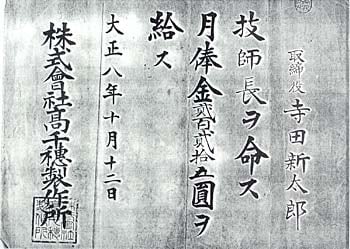 取締役 寺田新太郎
技師長ヲ命ス
月俸金貳百貳拾五圓ヲ
給ス
大正八年十月十二日
株式會社高千穗製作所